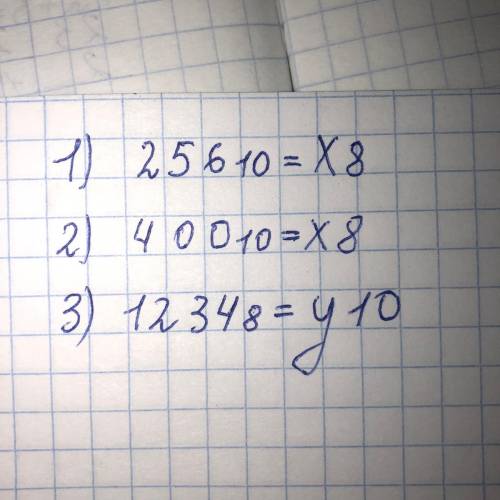 1) 256₁₀ = X₈
2) 400₁₀ = X₈
3) 1234₈ = y₁₀